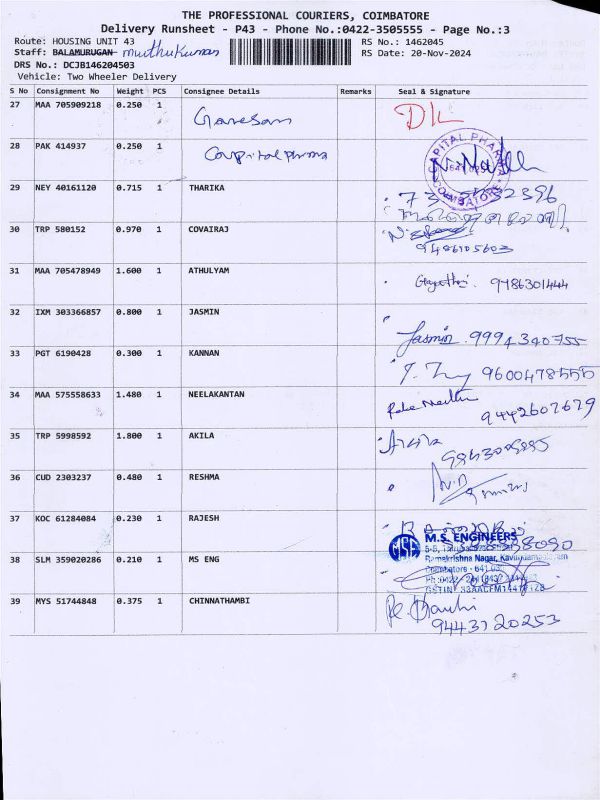 THE PROFESSIONAL COURIERS, COIMBATORE
Delivery Runsheet - P43 - Phone No.:0422-3505555 - Page No.:3
Route: HOUSING UNIT 43
RS No.: 1462045
Staff: BALAMURUGAN muthukumar
RS Date: 20-Nov-2024
DRS No.: DCJB146204503
Vehicle: Two Wheeler Delivery
S No Consignment No Weight PCS Consignee Details Remarks Seal & Signature
27 MAA 705909218 0.250 1 Ganesan
28 PAK 414937 0.250 1 Capital pharma CAPITAL PHARMA COIMBATORE
29 NEY 40161120 0.715 1 THARIKA
30 TRP 580152 0.970 1 COVAIRAJ 9486105603
31 MAA 705478949 1.600 1 ATHULYAM Gayathri. 9786301444
32 IXM 303366857 0.800 1 JASMIN Jasmin. 9994340755
33 PGT 6190428 0.300 1 KANNAN 9600478555
34 MAA 575558633 1.480 1 NEELAKANTAN 9442607679
35 TRP 5998592 1.800 1 AKILA
36 CUD 2303237 0.480 1 RESHMA
37 KOC 61284084 0.230 1 RAJESH
MSE M.S. ENGINEERS
38 SLM 359020286 0.210 1 MS ENG
Ramakrishna Nagar,
Coimbatore - 641
39 MYS 51744848 0.375 1 CHINNATHAMBI
9443720253